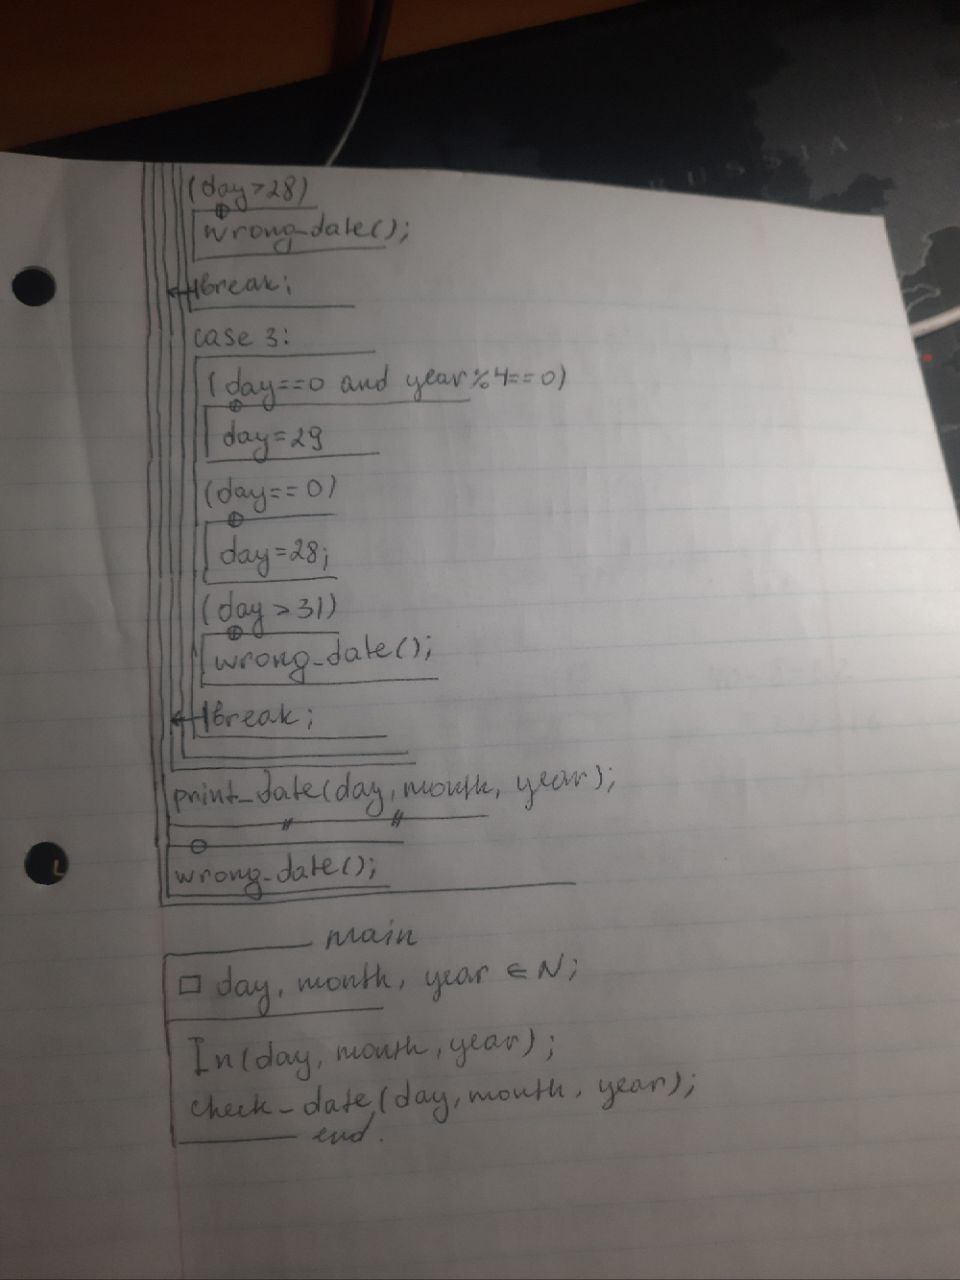 RUSSIA
(day>28)
wrong_date();
break;
case 3:
(day==0 and year%4==0)
day=29
(day==0)
day=28;
(day>31)
wrong_date();
break;
print_date(day, month, year);
wrong_date();
main
day, month, year ∈ N;
In(day, month, year);
check_date(day, month, year);
end.